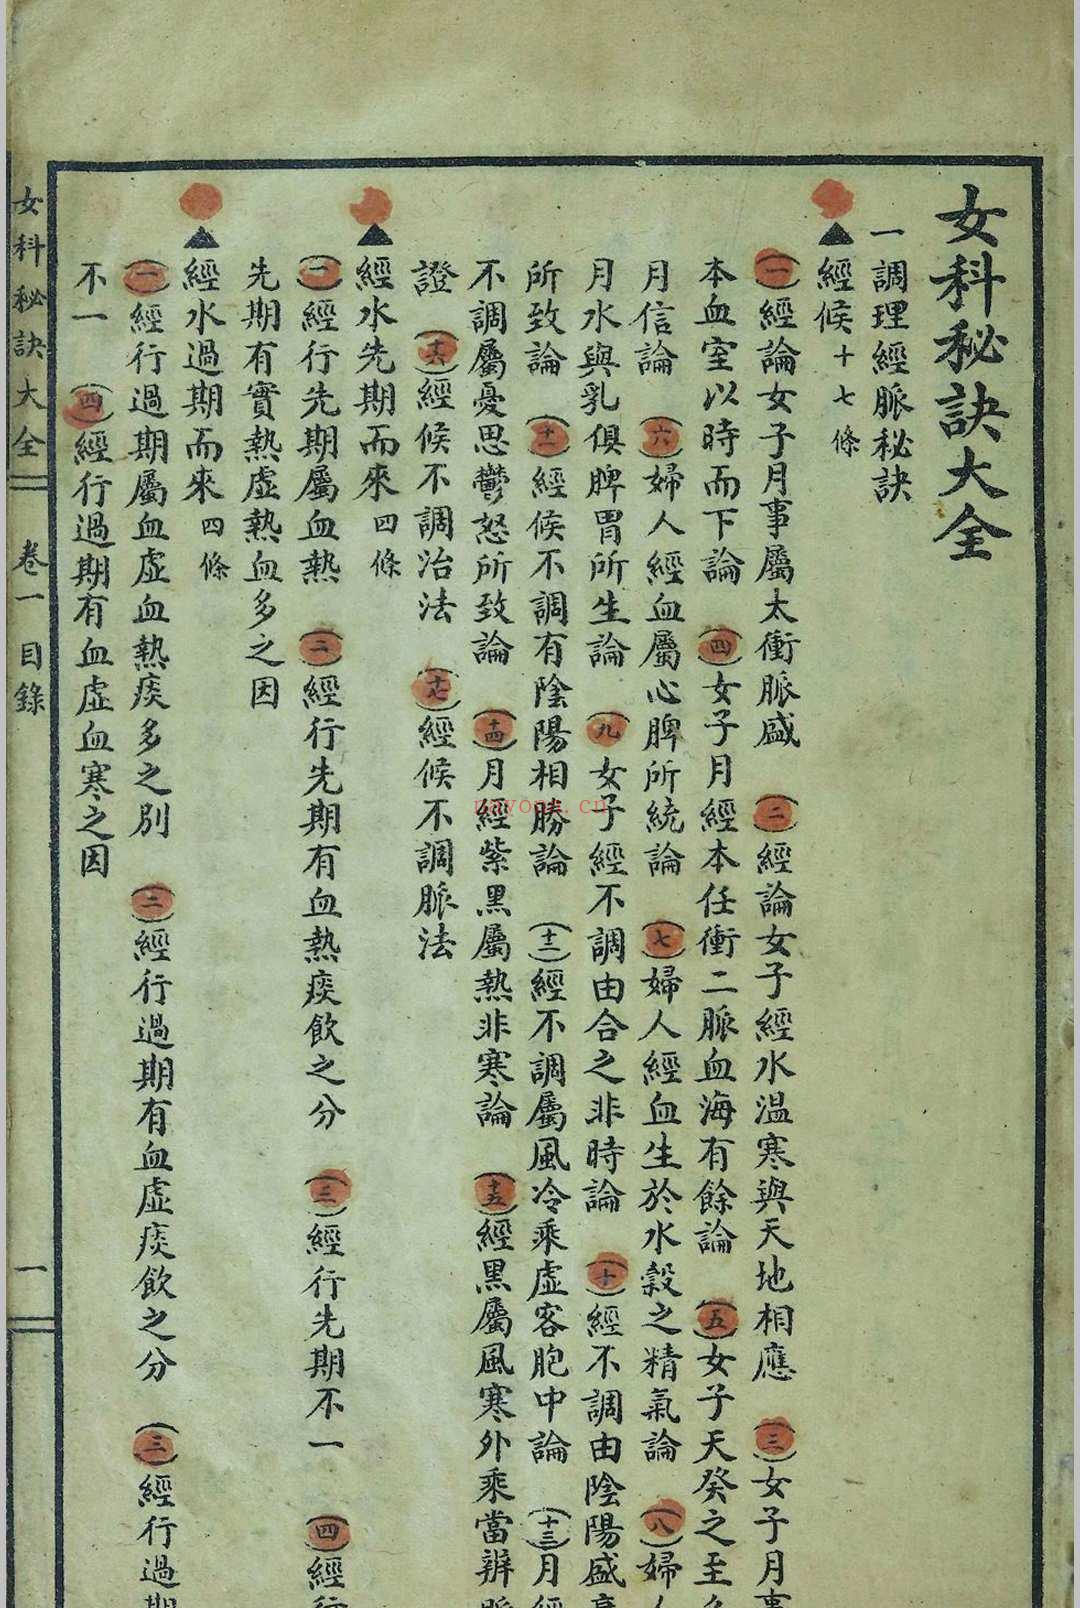 女科秘訣大全
一調理經脈秘訣
▲經候十七條
(一)經論女子月事屬太衝脈盛 (二)經論女子經水溫寒與天地相應 (三)女子月事
本血室以時而下論 (四)女子月經本任衝二脈血海有餘論 (五)女子天癸之至名
月信論 (六)婦人經血屬心脾所統論 (七)婦人經血生於水穀之精氣論 (八)婦人
月水與乳俱脾胃所生論 (九)女子經不調由合之非時論 (十)經不調由陰陽盛
所致論 (十一)經候不調有陰陽相勝論 (十二)經不調屬風冷乘虛客胞中論 (十三)月經
不調屬憂思鬱怒所致論 (十四)月經紫黑屬熱非寒論 (十五)經黑屬風寒外乘當辨脈
證 (十六)經候不調治法 (十七)經候不調脈法
▲經水先期而來四條
(一)經行先期屬血熱 (二)經行先期有血熱痰飲之分 (三)經行先期不一 (四)經行
先期有實熱虛熱血多之因
▲經水過期而來四條
(一)經行過期屬血虛血熱痰多之別 (二)經行過期有血虛痰飲之分 (三)經行過期
不一 (四)經行過期有血虛血寒之因
女科秘訣大全 卷一 目錄 一
nayona.cn